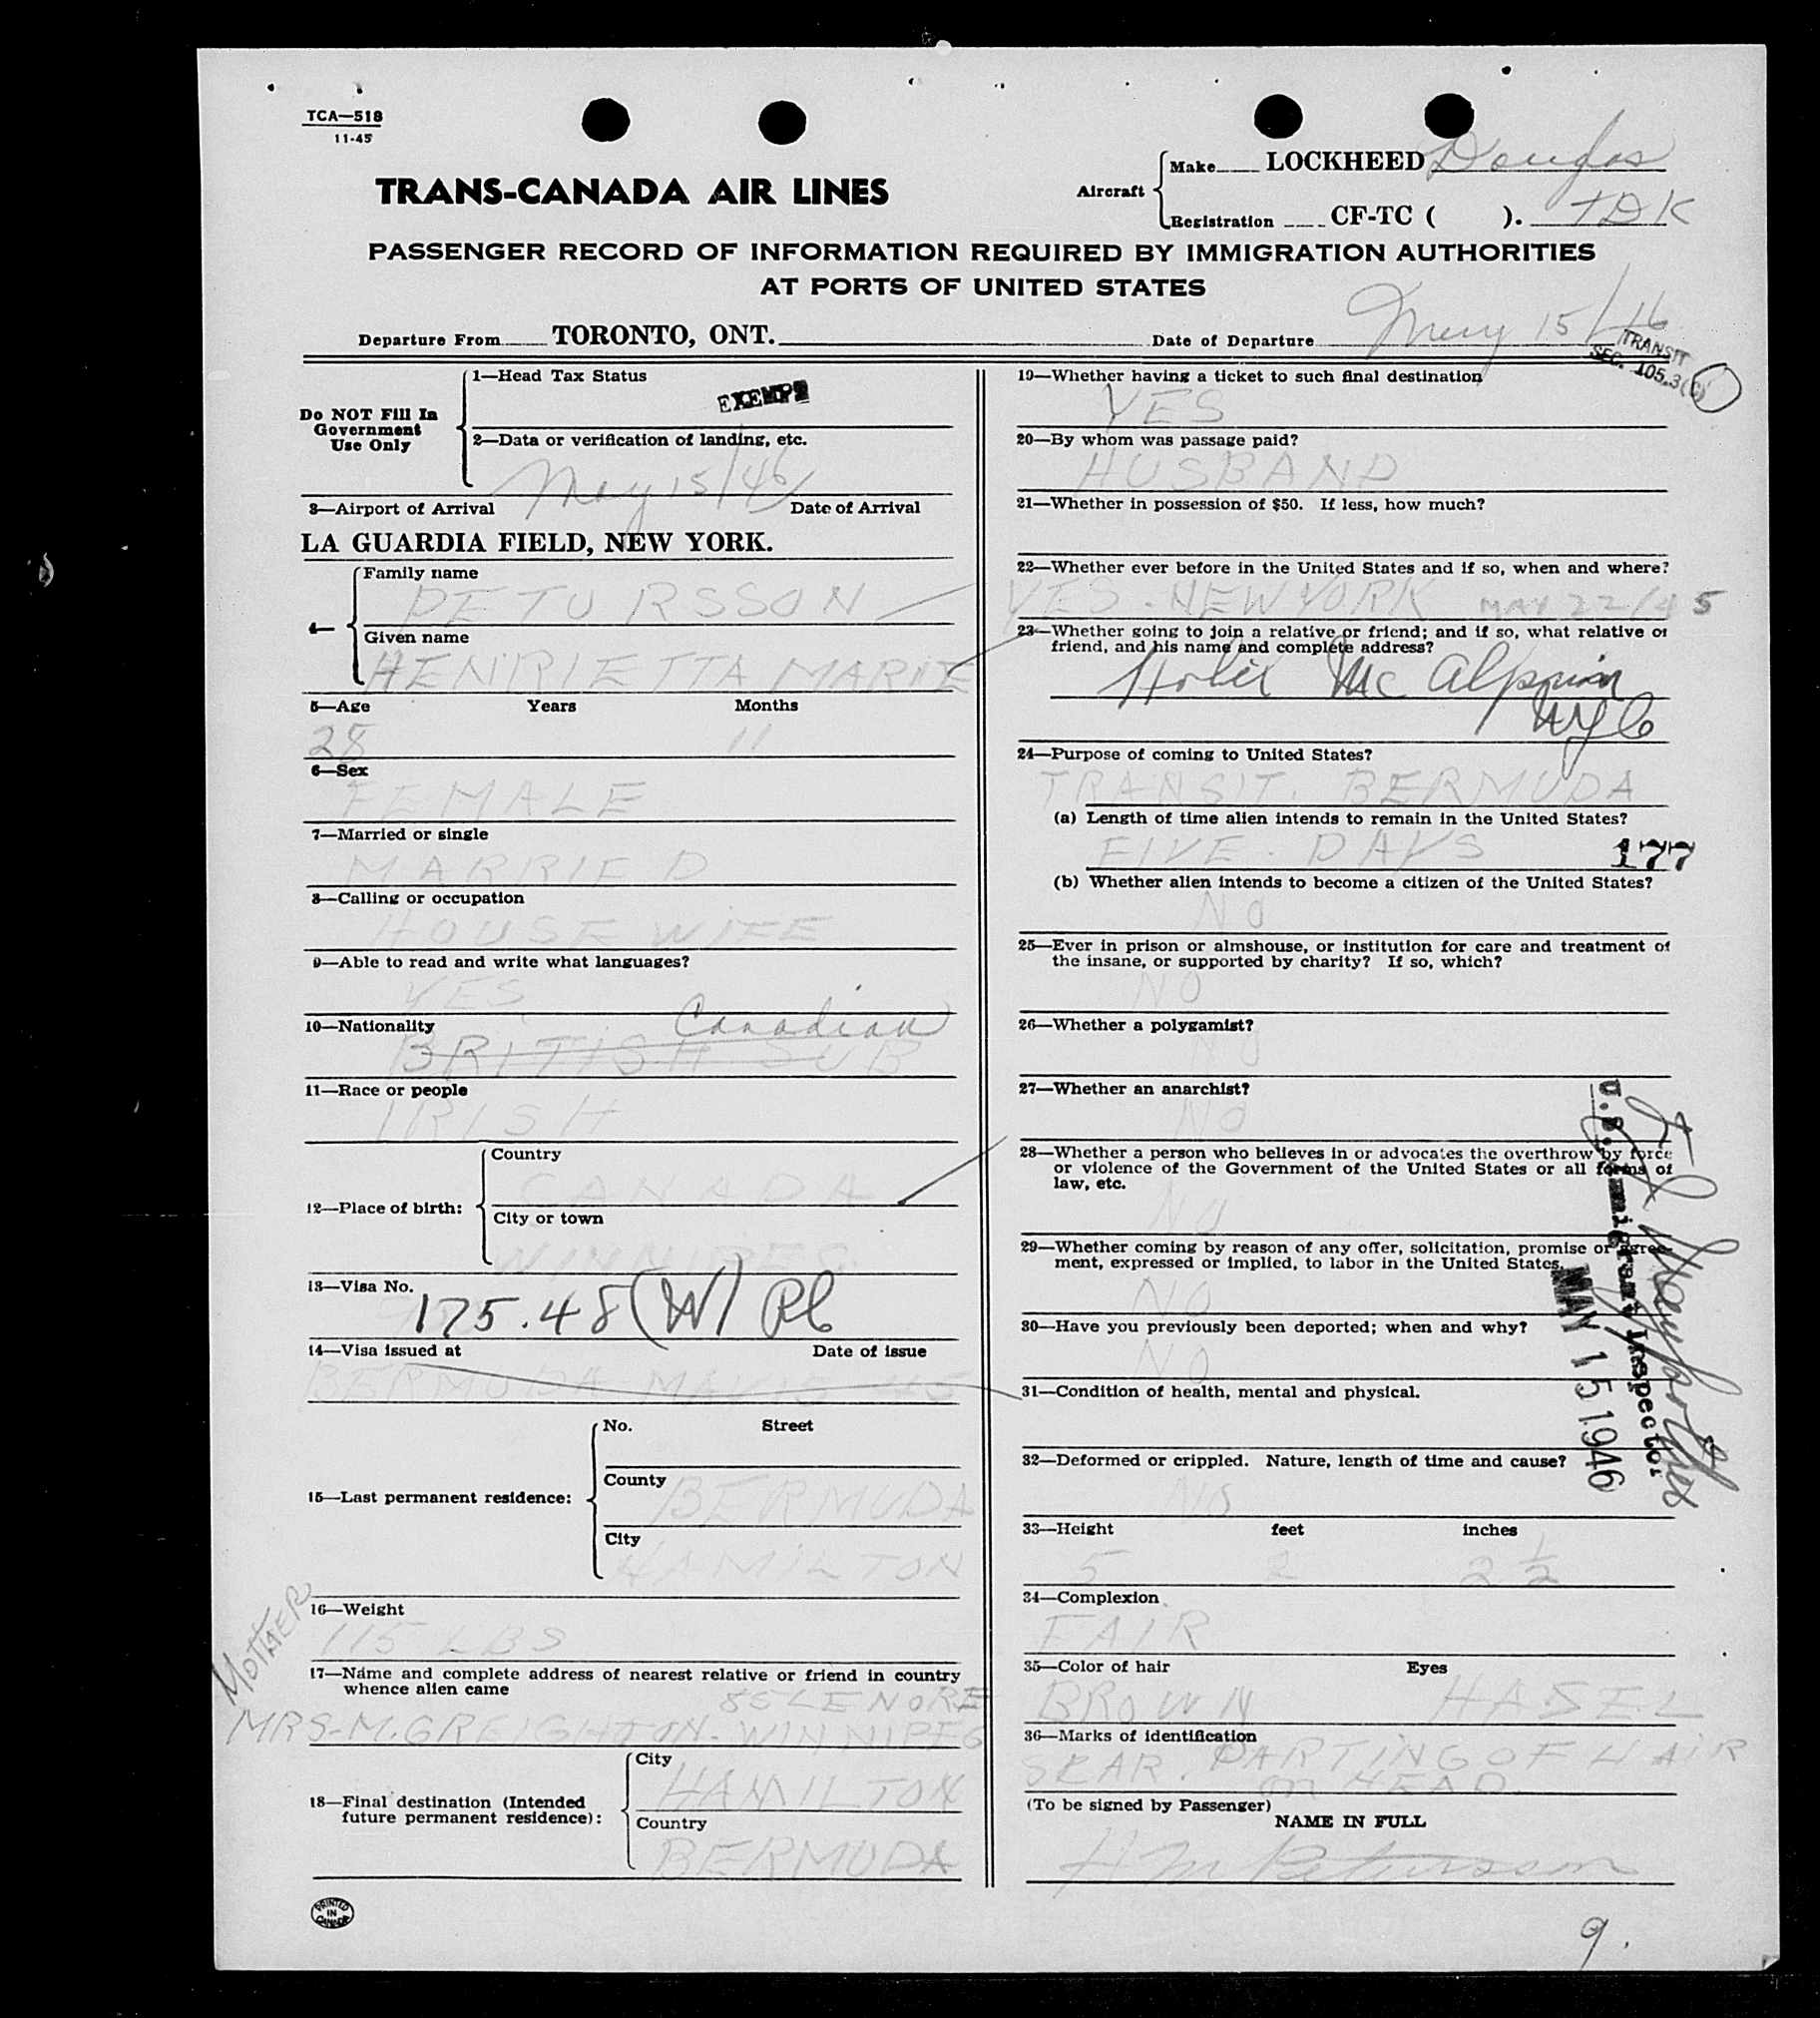 TCA—518
11-45
TRANS-CANADA AIR LINES
Aircraft
Make LOCKHEED Douglas
Registration CF-TC ( ). TDK
PASSENGER RECORD OF INFORMATION REQUIRED BY IMMIGRATION AUTHORITIES
AT PORTS OF UNITED STATES
Departure From TORONTO, ONT.
Date of Departure May 15/46
TRANSIT
SEC. 105.3(C)
Do NOT Fill In
Government
Use Only
1—Head Tax Status
EXEMPT
2—Data or verification of landing, etc.
May 15/46
3—Airport of Arrival Date of Arrival
LA GUARDIA FIELD, NEW YORK.
4—
Family name
PETURSSON
Given name
HENRIETTA MARIE
5—Age Years Months
28 11
6—Sex
FEMALE
7—Married or single
MARRIED
8—Calling or occupation
HOUSEWIFE
9—Able to read and write what languages?
YES
10—Nationality Canadian
BRITISH SUB
11—Race or people
IRISH
12—Place of birth:
Country
CANADA
City or town
WINNIPEG
13—Visa No.
175.48 (W)
14—Visa issued at Date of issue
BERMUDA MAY 15 45
15—Last permanent residence:
No. Street
County
BERMUDA
City
HAMILTON
16—Weight
115 LBS
MOTHER
17—Name and complete address of nearest relative or friend in country
whence alien came
85 LENORE
MRS-M.GREIGHTON-WINNIPEG
18—Final destination (Intended
future permanent residence):
City
HAMILTON
Country
BERMUDA
PRINTED
IN
CANADA
19—Whether having a ticket to such final destination
YES
20—By whom was passage paid?
HUSBAND
21—Whether in possession of $50. If less, how much?
22—Whether ever before in the United States and if so, when and where?
YES-NEW YORK MAY 22/45
23—Whether going to join a relative or friend; and if so, what relative or
friend, and his name and complete address?
Hotel Mc Alpin
NYC
24—Purpose of coming to United States?
TRANSIT. BERMUDA
(a) Length of time alien intends to remain in the United States?
FIVE. DAYS
177
(b) Whether alien intends to become a citizen of the United States?
NO
25—Ever in prison or almshouse, or institution for care and treatment of
the insane, or supported by charity? If so, which?
NO
26—Whether a polygamist?
NO
27—Whether an anarchist?
NO
28—Whether a person who believes in or advocates the overthrow by force
or violence of the Government of the United States or all forms of
law, etc.
NO
29—Whether coming by reason of any offer, solicitation, promise or agree-
ment, expressed or implied, to labor in the United States.
NO
30—Have you previously been deported; when and why?
NO
31—Condition of health, mental and physical.
U.S. Immigrant Inspector
MAY 15 1946
32—Deformed or crippled. Nature, length of time and cause?
NO
33—Height feet inches
5 2 2½
34—Complexion
FAIR
35—Color of hair Eyes
BROWN HASEL
36—Marks of identification
SCAR. PARTING OF HAIR
ON HEAD.
(To be signed by Passenger)
NAME IN FULL
H M Petursson
9.